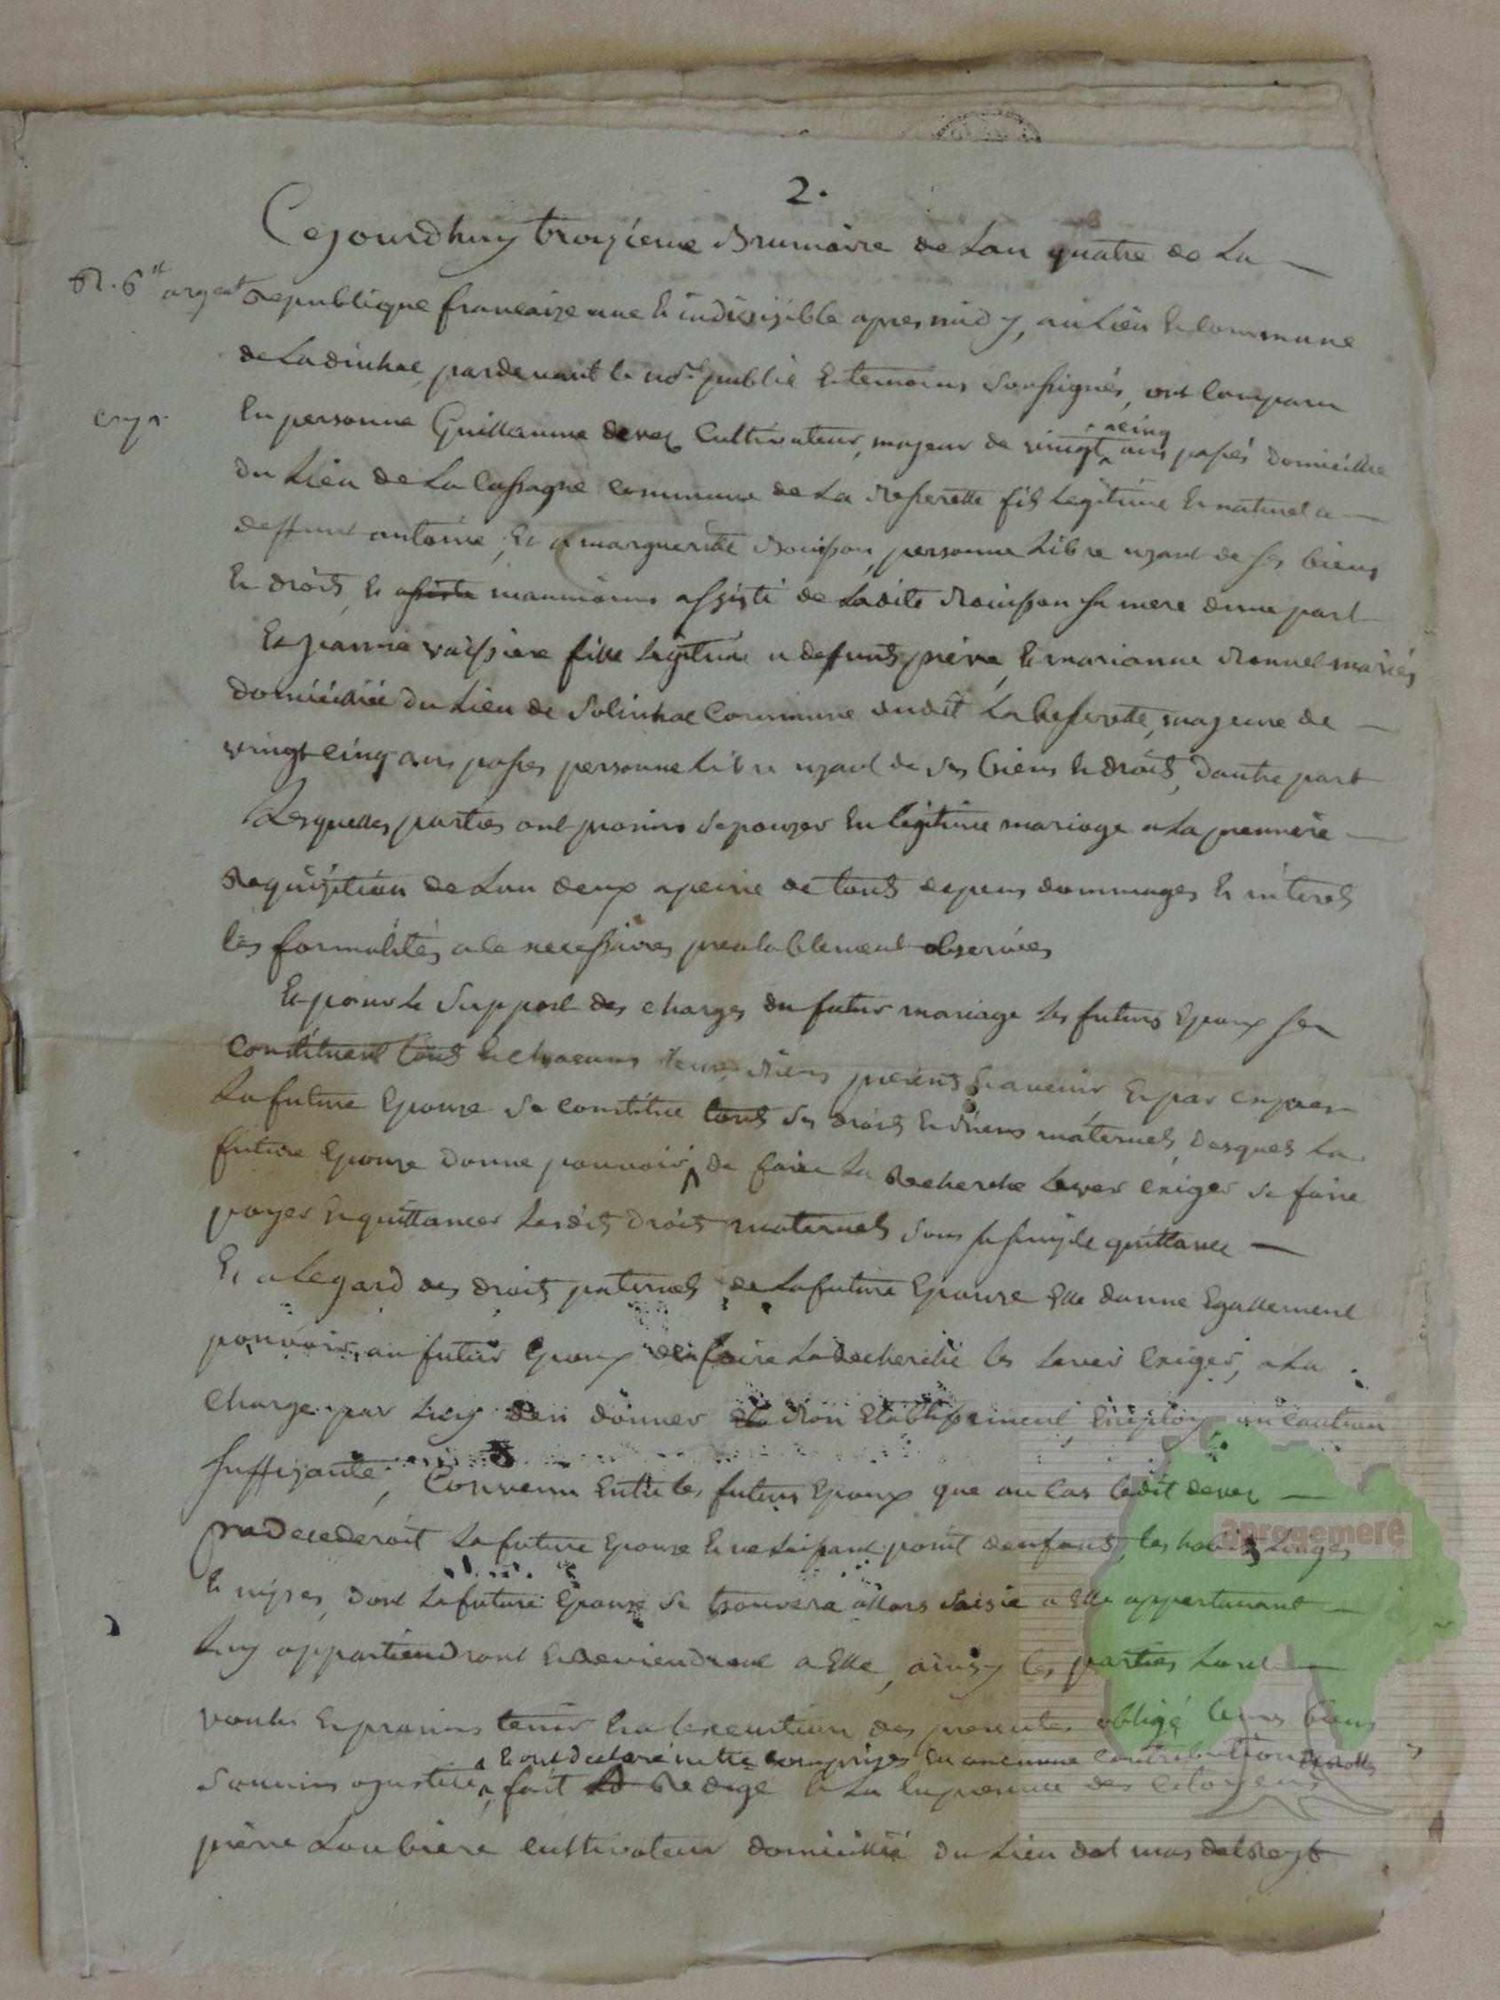 2.
Cejourdhuy troizieme Brumaire de Lan quatre de La
R. 6# argent
Republique francaize une et indivizible apres midy, au Lieu et commune
de Ladinhac pardevant le no.re public et temoins soussignés, ont comparu
exp.
En personne Guillaume devez Cultivateur, majeur de vingt cinq ans passés domicillié
du Lieu de La Cassagne commune de La Besserette fils legitime et naturel a
deffunt antoine, et a marguerite Rouisson, personne Libre uzant de ses biens
et droits, et assisté manmoins assisté de Ladite Rouisson sa mere dune part
Et jeanne vaissiere fille legitime a defunts pierre, et marianne Ronnel mariés
domicilliée du Lieu de Solinhac Commune dudit Labesserette, majeure de
vingt cinq ans passés personne Libre uzant de ses biens et droits, dautre part
Lesquelles parties ont promis sepouzer en legitime mariage a La premiere
Requizition de Lun deux a peine de touts depens dommages et interets
les formalités a ce necessaires prealablement observées
Et pour Le Support des charges du futur mariage Les futurs Epoux sen
constituent touts et chacuns leurs Biens presents et avenir et par exprès
La future Epouze se constitue touts ses droits et biens maternels, desquels La
future Epouze donne pouvoir de faire La Recherche Lever exiger se faire
payer et quittancer Lesdits droits maternels sous sa simple quittance
Et a Legard des droits paternels de La future Epouze Elle donne Egallement
pouvoir au futur Epoux den faire La Recherche les Lever exiger, a La
charge par Luy den donner Bon Etablissement, Employ ou caution
suffizante, Convenu Entre les futurs Epoux que au cas ledit devez
predecederoit La future Epouze et ne Laissant point denfants, les habits Linges
et nipes, dont La future Epouze se trouvera allors saisie a Elle appartenant
Luy appartiendront et Reviendront a Elle, ainsy les parties Lont
voulu et promis tenir et a Lexecution des presentes obligé leurs biens
et ont declaré netre comprizes en aucunne contribution
soumis a justice, fait et Redigé et La En presence des citoyens
pierre Laubiere cultivateur domicillié du Lieu del mas delreyt
aprogemere